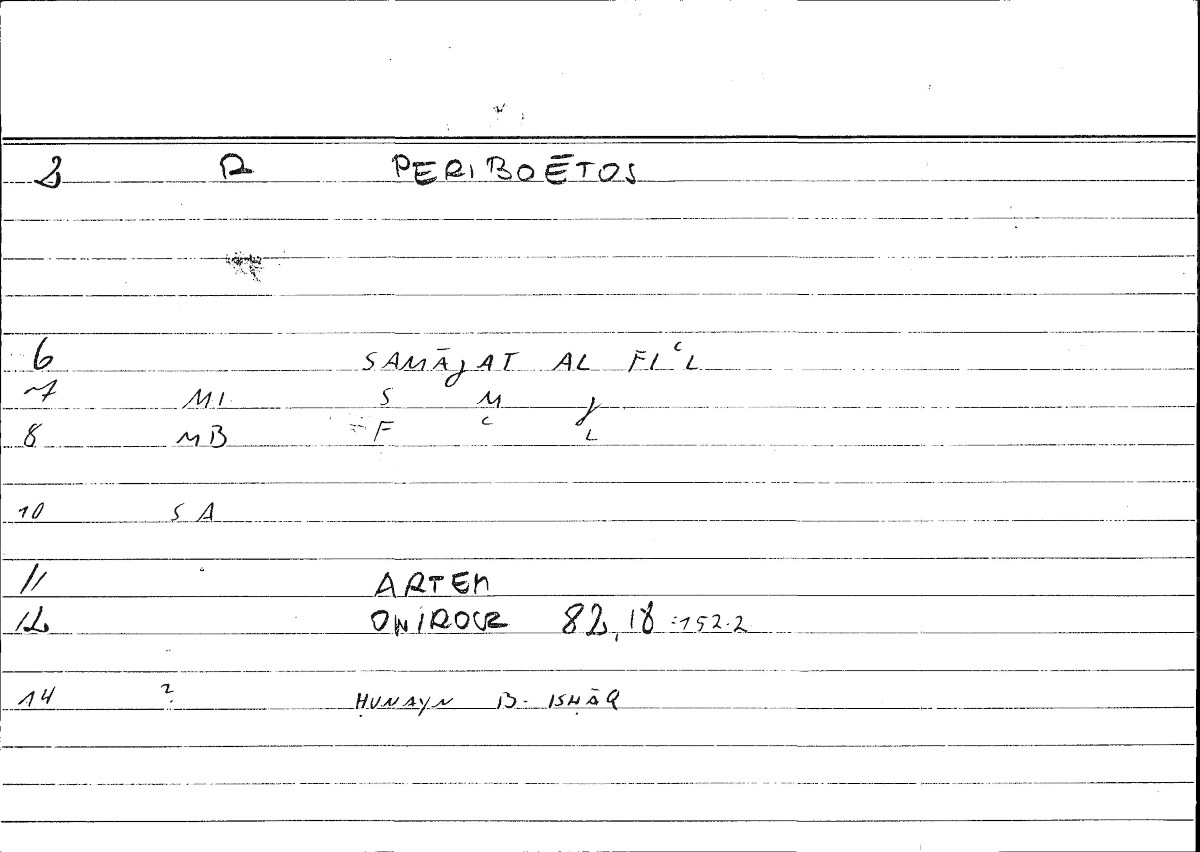 2 R PERIBOĒTOS
6 SAMĀJAT AL FIʿL
7 MI S M J
8 MB F ʿ L
10 SA
11 ARTEM
12 ONIROCR 82,18 :152.2
14 ? ḤUNAYN B. ISḤĀQ